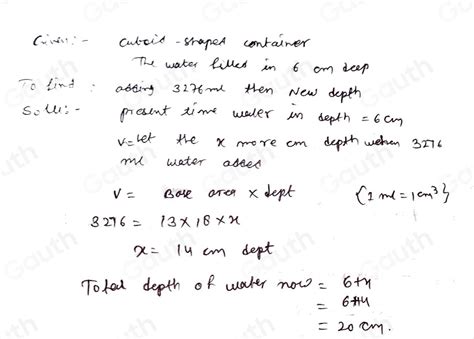 Given:- cuboid-shaped container
The water filled in 6 cm deep
To find : adding 3276ml then New depth
Solu:- present time water in depth = 6cm
V= let the x more cm depth when 3276
ml water added
V = Base area x dept {1 ml = 1cm³}
3276 = 13×18×x
x= 14 cm dept
Total depth of water now = 6+x
= 6+14
= 20 cm.